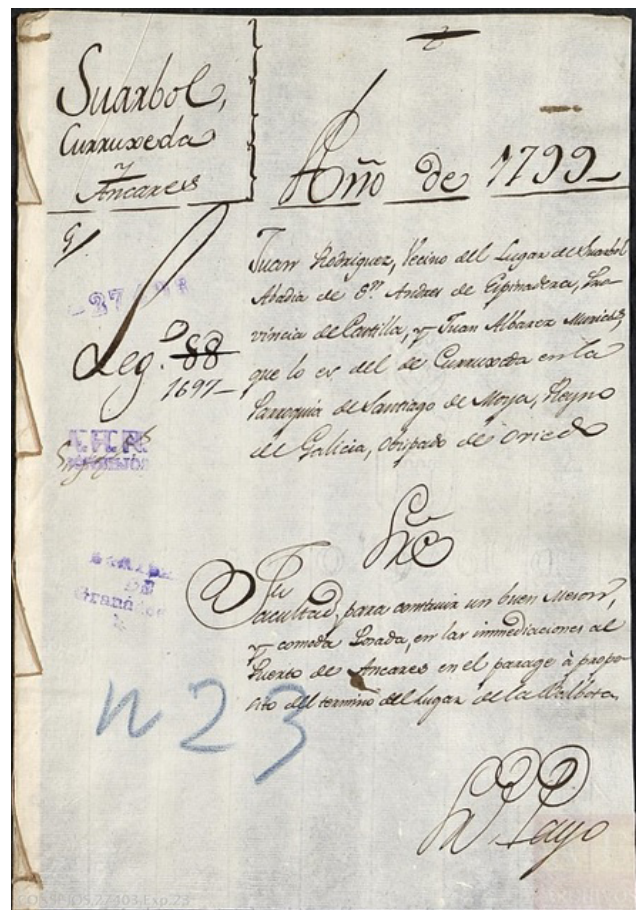 Suarbol,
Curruxeda
y
Ancares
Año de 1799
Leg.º 88
1697
Juan Rodriguez, Vecino del Lugar de Suarbol
Abadia de Sn. Andres de Espinadera, Pro-
vincia de Castilla, y Juan Albarez
que lo es del de Curruxeda en la
Parroquia de Santiago de Moya, Reyno
de Galicia, Obispado de Oviedo
Sre
Facultad, para construir un buen Meson,
y comoda Posada, en las immediaciones al
Puerto de Ancares en el parage à propo-
sito del termino del Lugar de la Balbota.
n 23
Payo
CONSEJOS,27103,Exp.23